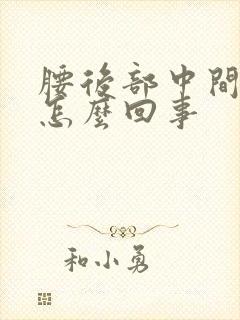 腰後部中間
怎麼回事
和小勇